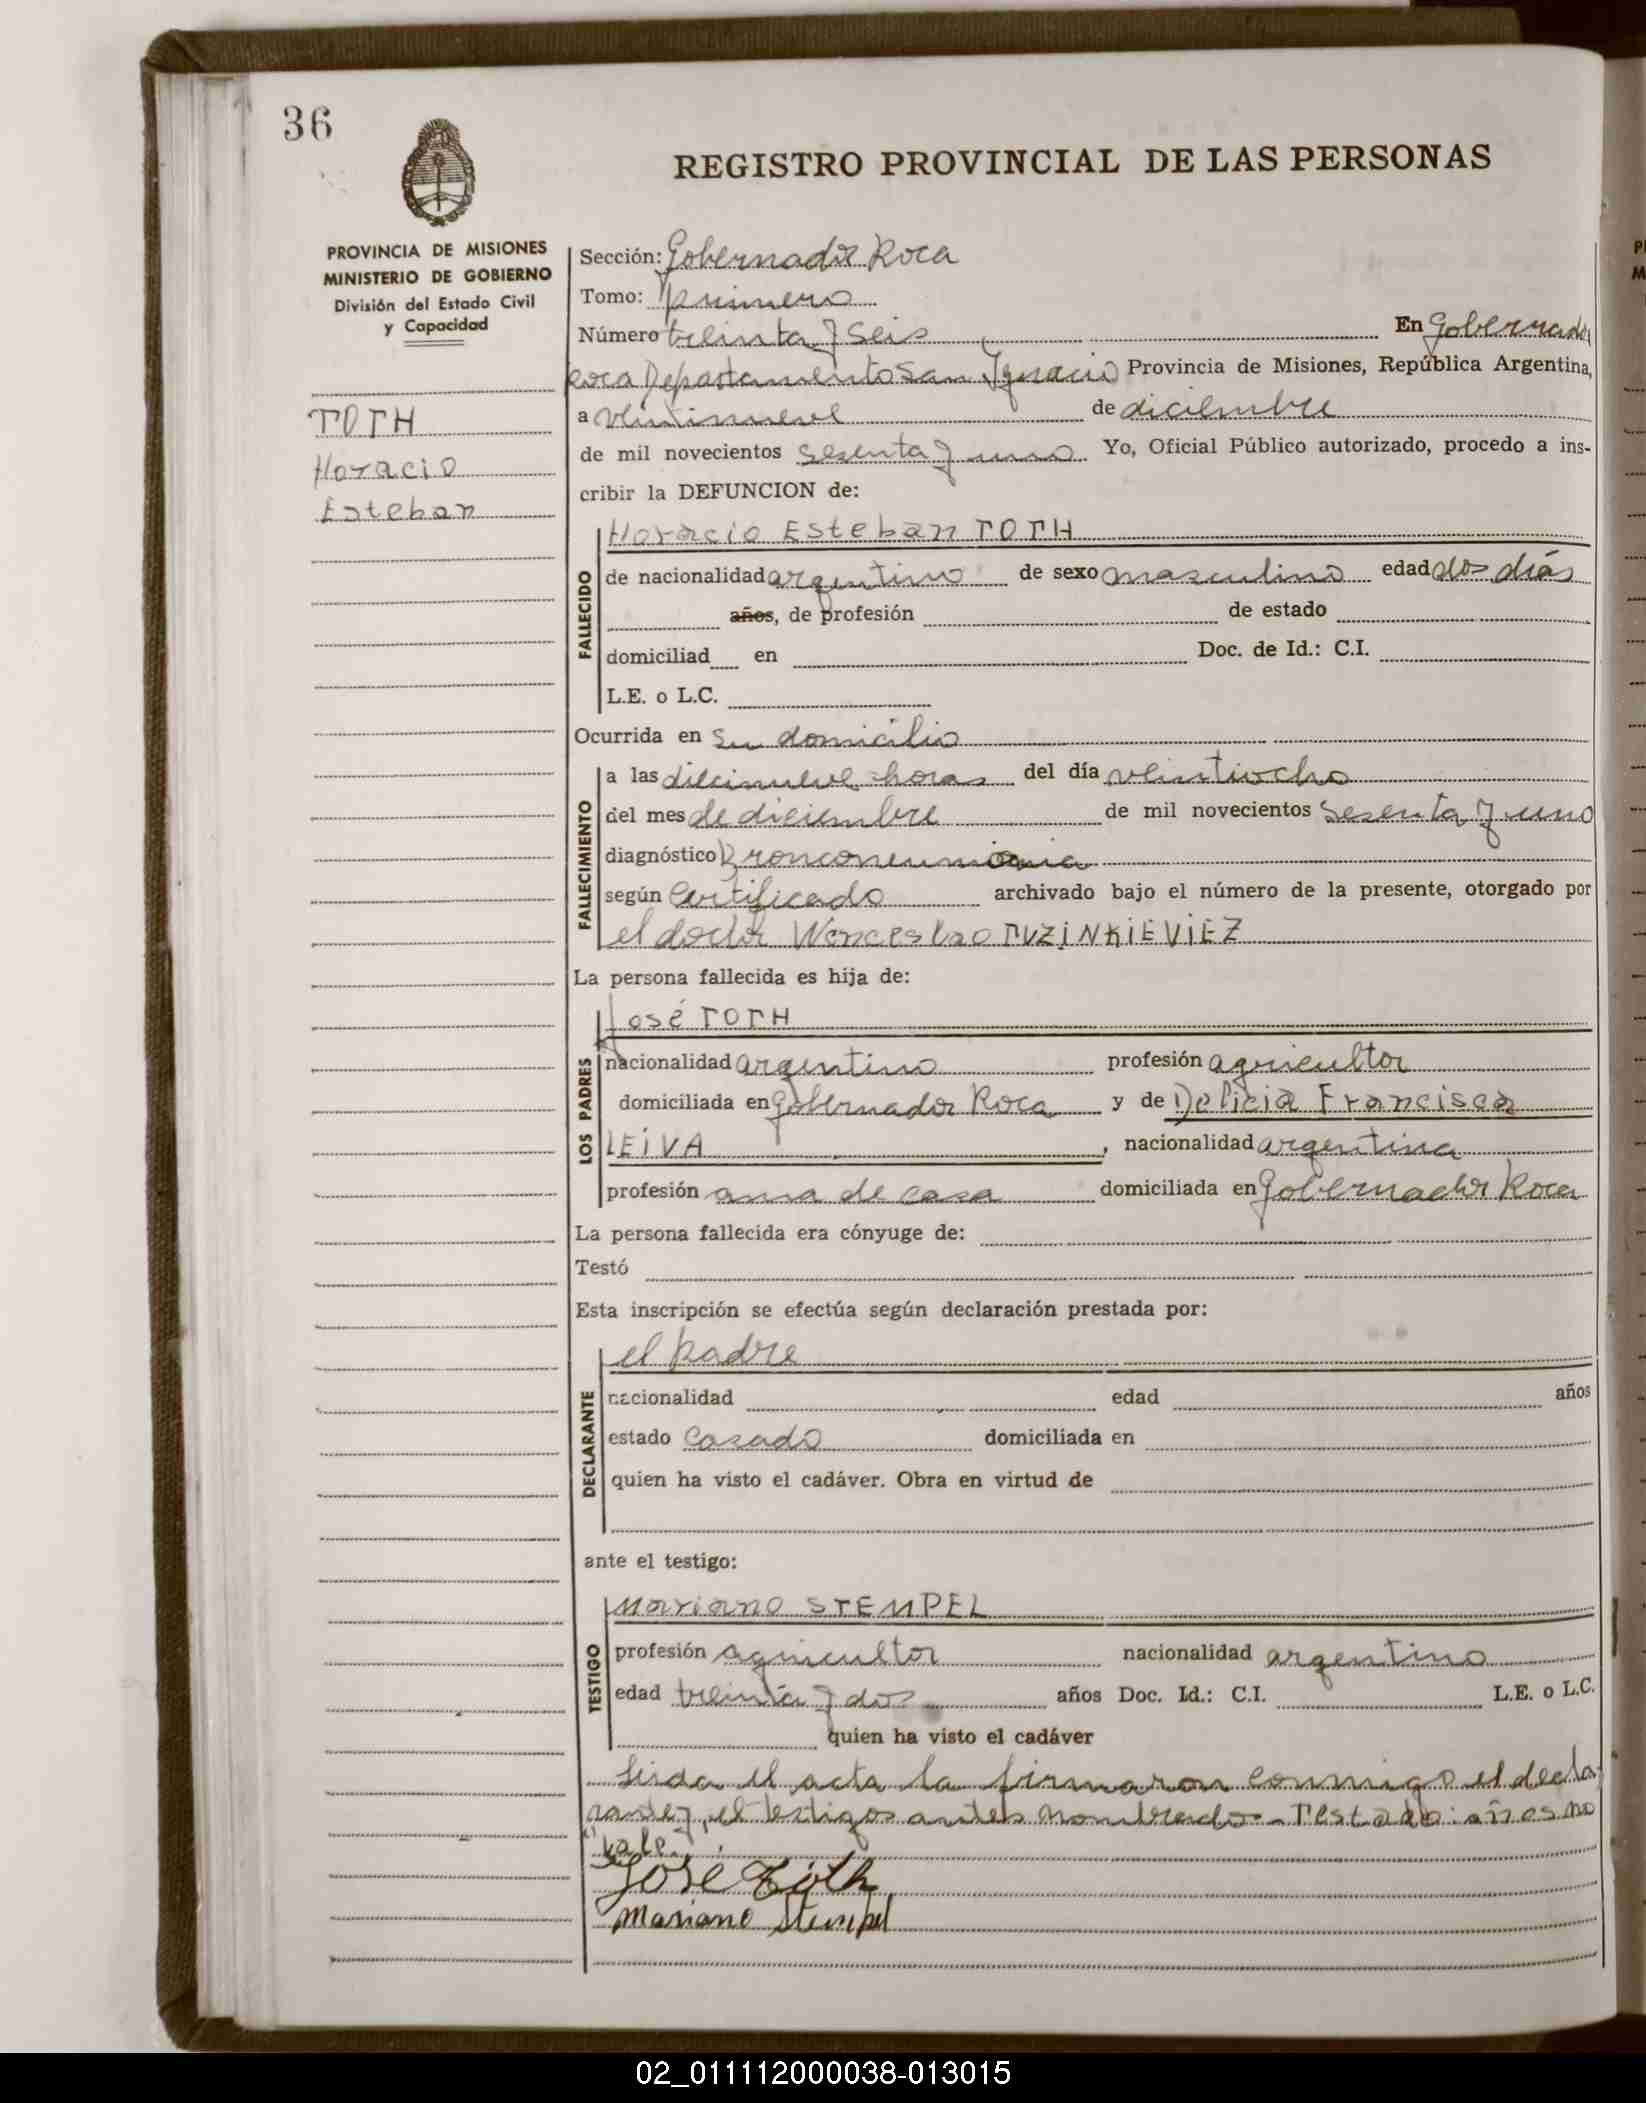 36
REGISTRO PROVINCIAL DE LAS PERSONAS
PROVINCIA DE MISIONES
MINISTERIO DE GOBIERNO
División del Estado Civil
y Capacidad
TOTH
Horacio
Esteban
Sección: Gobernador Roca
Tomo: primero
Número treinta y seis En Gobernador
Roca Departamento San Ignacio Provincia de Misiones, República Argentina,
a veintinueve de diciembre
de mil novecientos sesenta y uno Yo, Oficial Público autorizado, procedo a ins-
cribir la DEFUNCION de:
FALLECIDO
Horacio Esteban TOTH
de nacionalidad argentino de sexo masculino edad dos días
años, de profesión de estado
domiciliad en Doc. de Id.: C.I.
L.E. o L.C.
Ocurrida en su domicilio
FALLECIMIENTO
a las diecinueve horas del día veintiocho
del mes de diciembre de mil novecientos sesenta y uno
diagnóstico Bronconeumonia
según Certificado archivado bajo el número de la presente, otorgado por
el doctor Wenceslao TUZiNKiEViEZ
La persona fallecida es hija de:
LOS PADRES
José TOTH
nacionalidad argentino profesión agricultor
domiciliada en Gobernador Roca y de Delicia Francisca
LEiVA, nacionalidad argentina
profesión ama de casa domiciliada en Gobernador Roca
La persona fallecida era cónyuge de:
Testó
Esta inscripción se efectúa según declaración prestada por:
DECLARANTE
el padre
nacionalidad edad años
estado casado domiciliada en
quien ha visto el cadáver. Obra en virtud de
ante el testigo:
TESTIGO
Mariano STEMPEL
profesión agricultor nacionalidad argentino
edad treinta y dos años Doc. Id.: C.I. L.E. o L.C.
quien ha visto el cadáver
Leida el acta la firmaron conmigo el decla
rante y el testigos antes nombrado - Testado: años no
vale.
José Tóth
Mariano Stempel
02_011112000038-013015